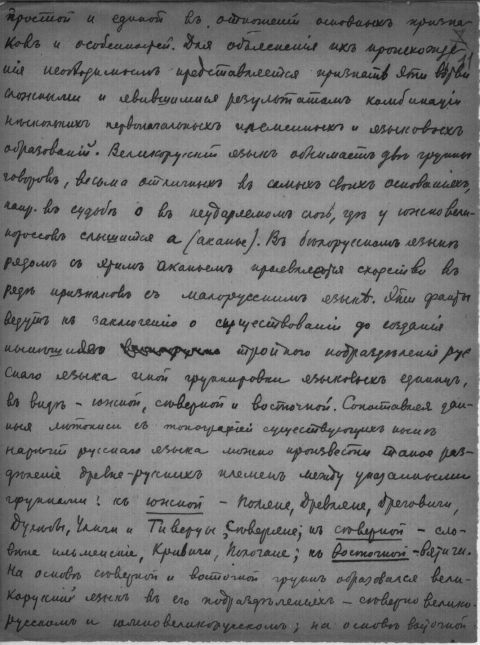 простой и единой въ отношенiи основныхъ призна-
ковъ и особенностей. Для объясненiя ихъ происхожде-
нiя необходимымъ представляется признать эти
сложными и явившимися результатомъ комбинацiи
нѣсколькихъ первоначальныхъ племенныхъ и языковыхъ
образованiй. Великорускiй языкъ обнимаетъ двѣ группы
говоровъ, весьма отличныхъ въ самыхъ своихъ основанiяхъ,
напр. въ судьбѣ о въ неударяемомъ слогѣ, гдѣ у южновели-
короссовъ слышится а (аканье). Въ бѣлорусскомъ языкѣ
рядомъ съ яркимъ аканьемъ проявляется сходство въ
рядѣ признаковъ съ малорусскимъ языкѣ. Эти факты
ведутъ къ заключенiю о существованiи до созданiя
нынѣшняго тройного подраздѣленiя рус
скаго языка иной группировки языковыхъ единицъ,
въ видѣ – южной, сѣверной и восточной. Сопоставляя дан-
ныя лѣтописи съ топографiей существующихъ нынѣ
нарѣчiй русскаго языка можно произвести такое раз-
дѣленiе древне-русскихъ племенъ между указанными
группами: къ южной – Поляне, Древляне, Дреговичи,
Дулѣбы, Уличи и Тиверцы, Сѣверяне; къ сѣверной – сло-
вѣне ильменскiе, Кривичи, Полочане; къ восточной – вятичи.
На основѣ сѣверной и восточной группъ образовался вели-
корускiй языкъ въ его подраздѣленiяхъ – сѣверно велико-
русскомъ и южновеликорусскомъ; на основѣ восточной